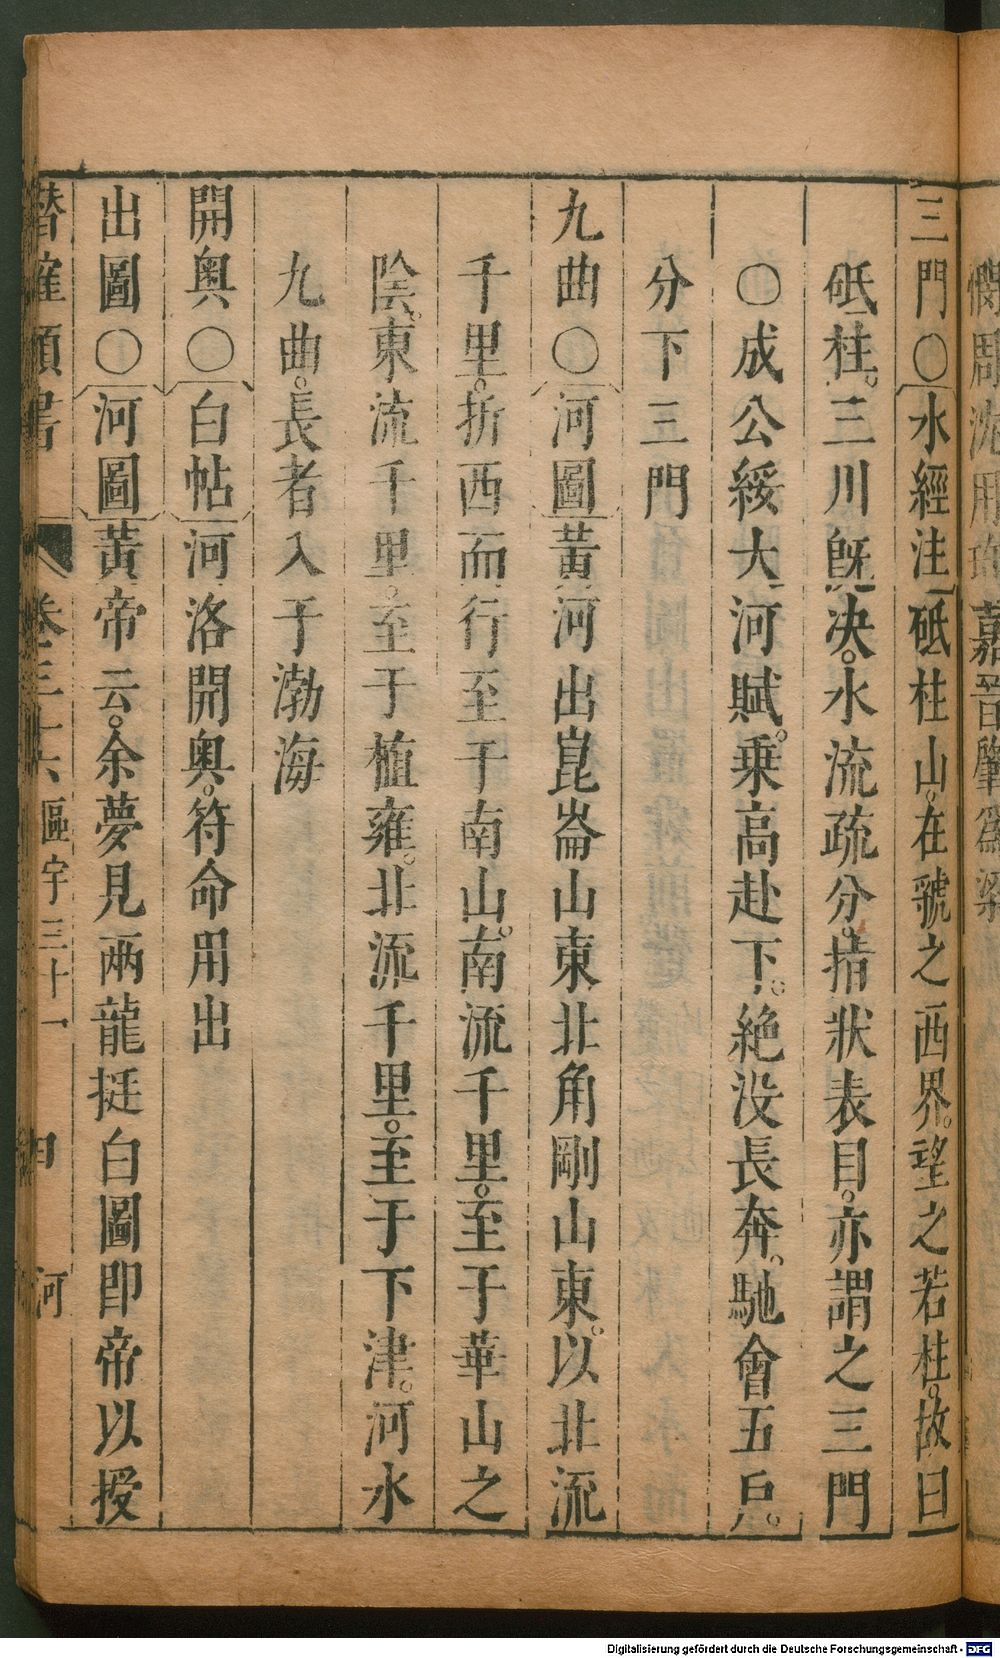 三門〇水經注砥柱山。在虢之西界。望之若柱。故曰
砥柱。三川旣決。水流疏分。指狀表目。亦謂之三門
〇成公綏大河賦。乗高赴下。絶没長奔。馳會五戶。
分下三門
九曲〇河圖黃河出崑崙山東北角剛山東。以北流
千里。折西而行至于南山。南流千里。至于華山之
陰。東流千里。至于植雍。北流千里。至于下津。河水
九曲。長者入于渤海
開奧〇白帖河洛開奥。符命用出
出圖〇河圖黃帝云。余夢見兩龍挺白圖即帝以授
潛確類書 卷三十六 區宇三十一 四 河
Digitalisierung gefördert durch die Deutsche Forschungsgemeinschaft - DFG